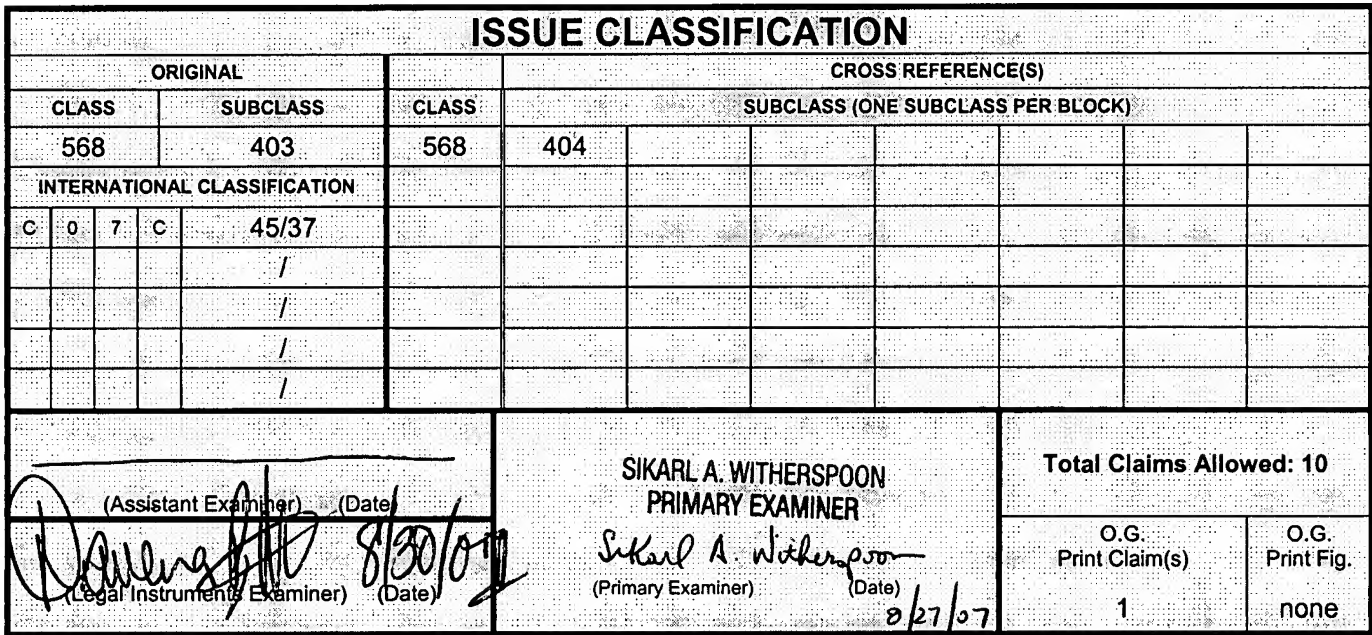 ISSUE CLASSIFICATION
ORIGINAL CROSS REFERENCE(S)
CLASS SUBCLASS CLASS SUBCLASS (ONE SUBCLASS PER BLOCK)
568 403 568 404
INTERNATIONAL CLASSIFICATION
C 0 7 C 45/37
/
/
/
/
(Assistant Examiner) (Date)
8/30/07
(Legal Instruments Examiner) (Date)
SIKARL A. WITHERSPOON
PRIMARY EXAMINER
Sikarl A. Witherspoon
(Primary Examiner) (Date)
8/27/07
Total Claims Allowed: 10
O.G. O.G.
Print Claim(s) Print Fig.
1 none